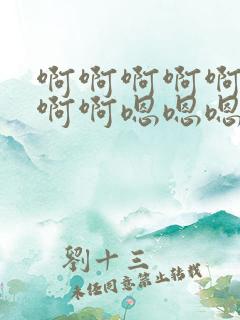 啊啊啊啊啊
啊啊嗯嗯嗯
劉十三
未经同意禁止转载